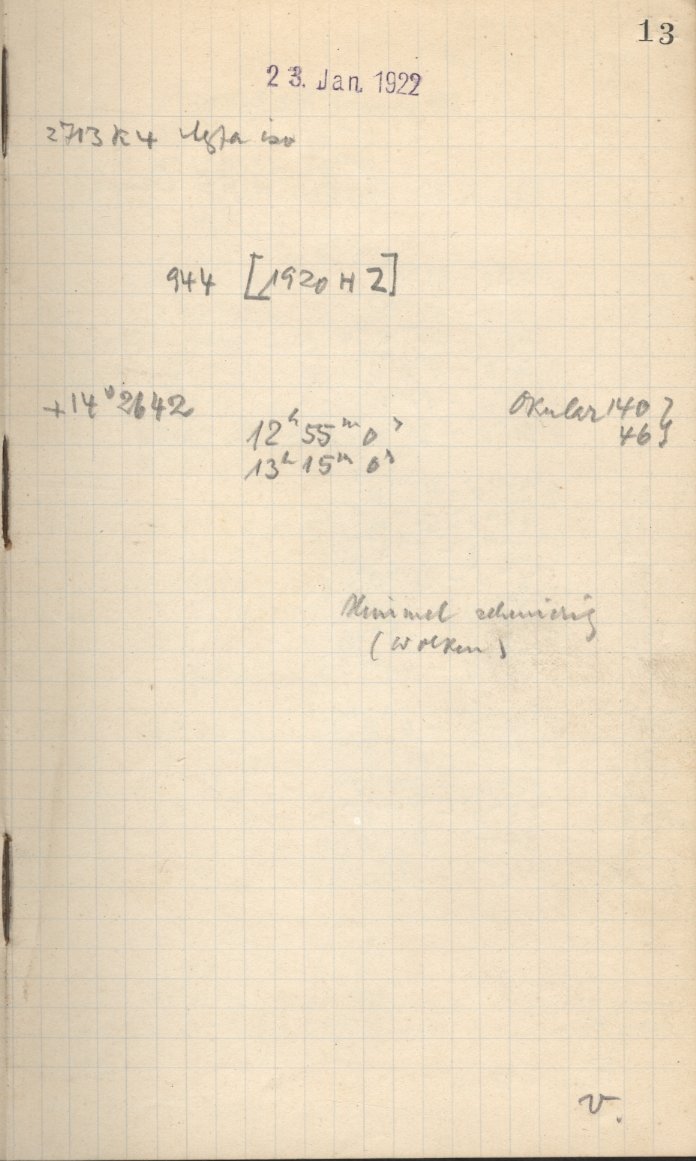 13
23. Jan. 1922
2713 K4 Agfa iso
944 [1920 HZ]
+14° 2642
12ʰ 55ᵐ 0ˢ
13ʰ 15ᵐ 0ˢ
Okular 140
46
Himmel schmierig
(Wolken)
v.